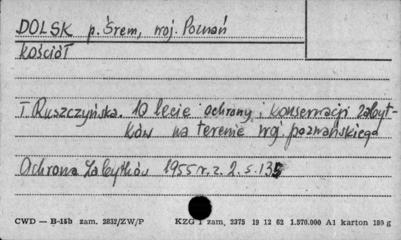 DOLSK p. Śrem, woj. Poznań
Kościół
T. Ruszczyńska. 10 lecie ochrony i konserwacji zabyt-
ków na terenie woj. poznańskiego
Ochrona Zabytków 1955 r. z. 2. s. 135
CWD — B-15b zam. 2832/ZW/P KZG 1 zam. 2375 19 12 62 1.570.000 A1 karton 180 g